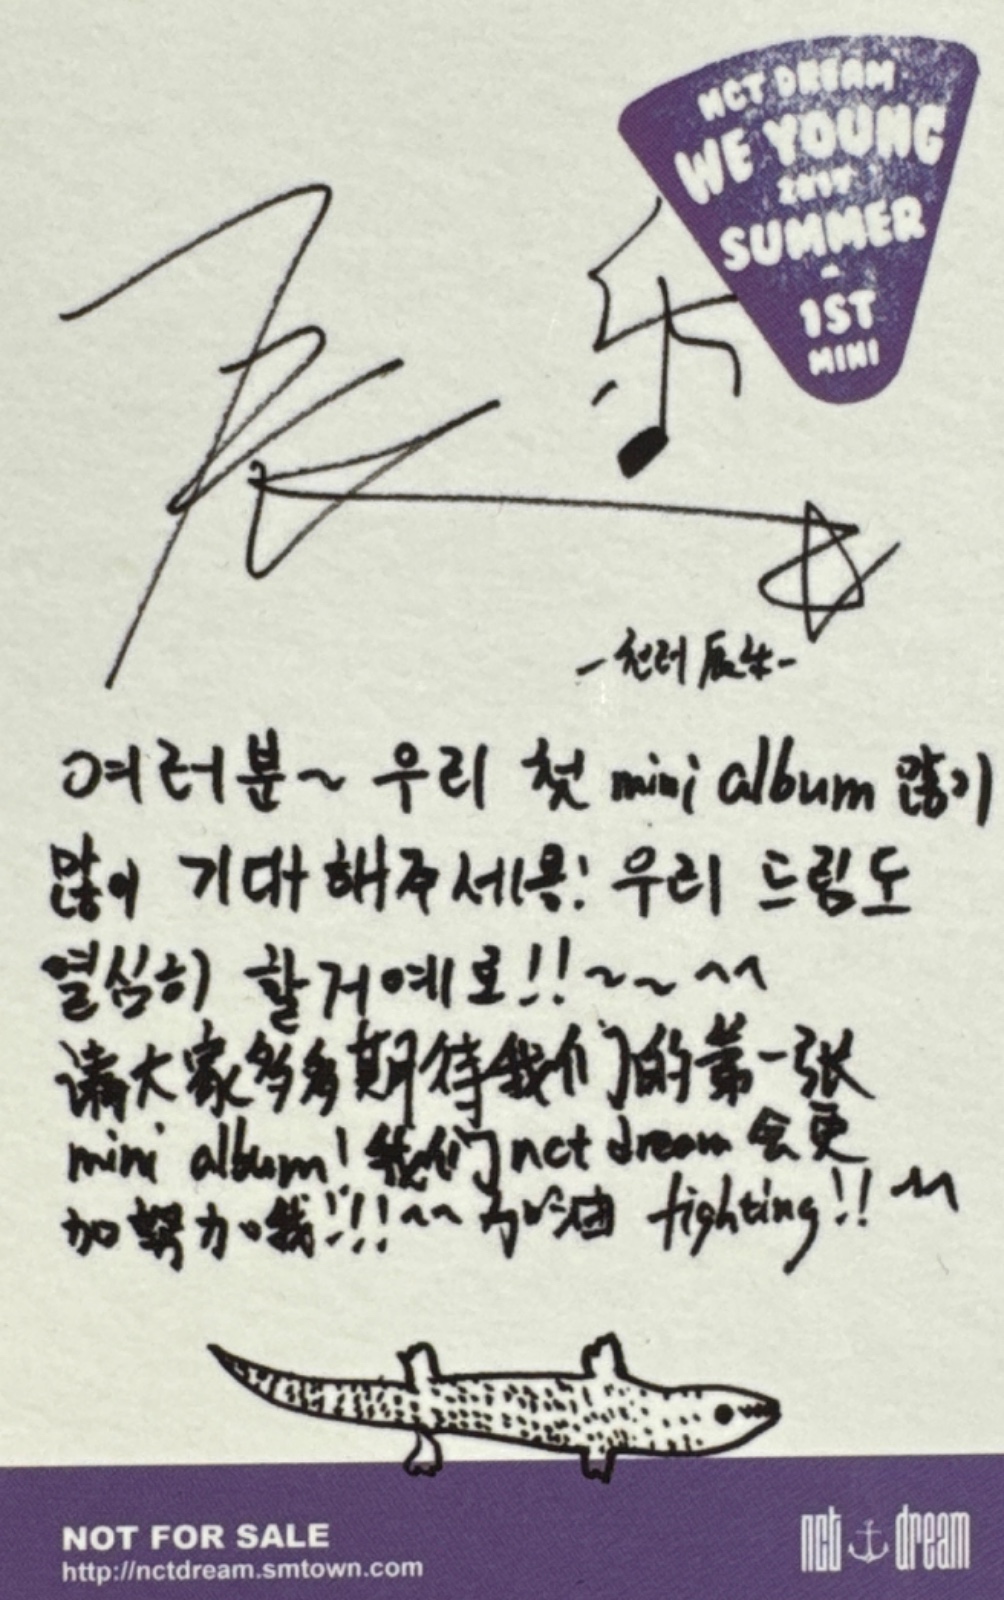 NCT DREAM
WE YOUNG
2017
SUMMER
-
1ST
MINI
辰乐
-천러 辰乐-
여러분~ 우리 첫 mini album 많이
많이 기대해주세용! 우리 드림도
열심히 할거예로!!~~ ^^
请大家多多期待我们的第一张
mini album! 我们nct dream会更
加努力哦!!!~~ 加油 fighting!! ^^
NOT FOR SALE
http://nctdream.smtown.com
nct dream